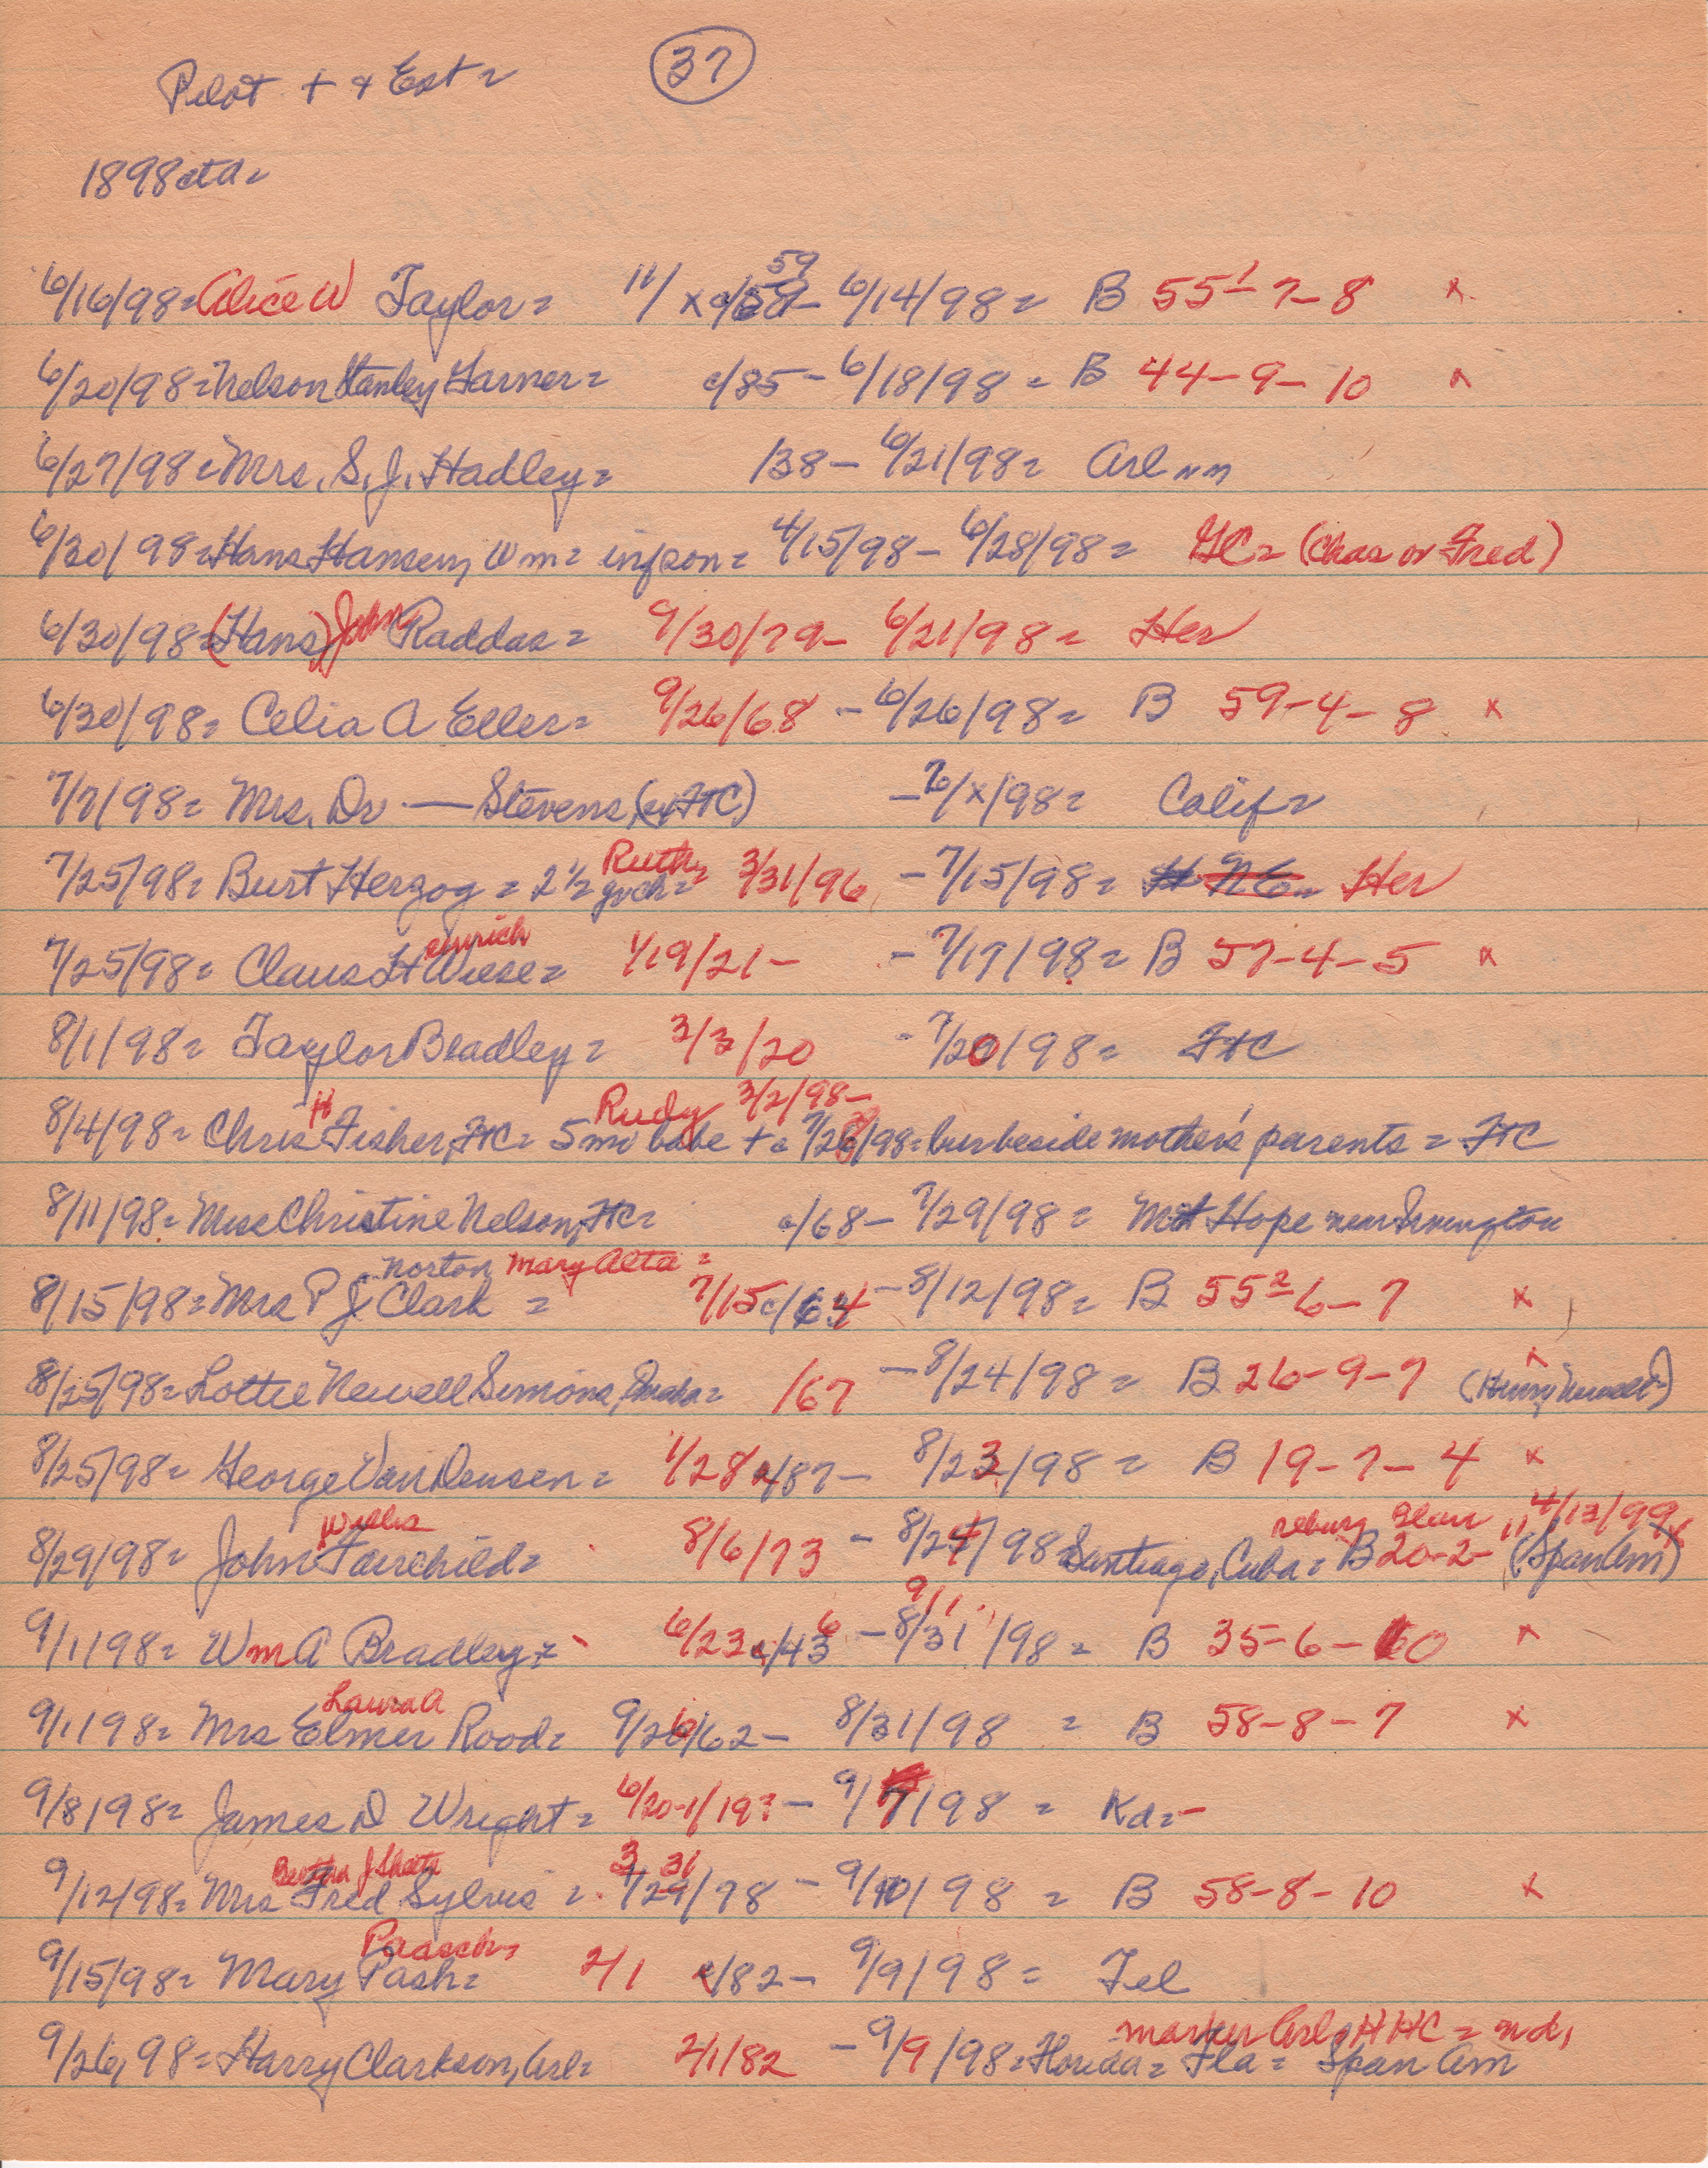 37
Pilot + & Est=
1898 cta=
6/16/98= Alice W Taylor= 11/x c/59 - 6/14/98= B 55¹-7-8 x
6/20/98= Nelson Stanley Garner= c/85 - 6/18/98= B 44-9-10 x
6/27/98= Mrs. S. J. Hadley= /38 - 6/21/98= Arl nm
6/30/98= Hans Hansen, Wm= inf son= 4/15/98 - 6/28/98= GC= (Chas or Fred)
6/30/98= (Hans) John Raddas= 9/30/79 - 6/21/98= Her
6/30/98= Celia A Eller= 9/26/68 - 6/26/98= B 59-4-8 x
7/7/98= Mrs. Dr — Stevens, (ex FtC) - 6/x/98= Calif=
7/25/98= Burt Herzog= 2½ Ruth= 3/31/96 - 7/15/98= Her
7/25/98= Claus Heinrich Wiese= 1/19/21 - 7/17/98= B 57-4-5 x
8/1/98= Taylor Bradley= 3/3/20 - 7/20/98= FtC
8/4/98= Chris H Fisher, FtC= 5 mo babe Rudy 3/2/98 - + c 7/28/98= bur beside mother's parents= FtC
8/11/98= Miss Christine Nelson, FtC= c/68 - 7/29/98= Mt Hope near Irvington
8/15/98= Mrs P J Norton Clark Mary Alta= 7/15 c/64 - 8/12/98= B 55² 6-7 x
8/25/98= Lottie Newell Simons, Omaha= /67 - 8/24/98= B 26-9-7 x (Henry Newell)
8/25/98= George Van Deusen= 1/28 c/87 - 8/23/98= B 19-7-4 x
8/29/98= John Willis Fairchild= 8/6/73 - 8/24/98 Santiago, Cuba= reburg Blair 4/13/99 B 20-2-11 (Span Am) x
9/1/98= Wm A Bradley= 6/23 c/43 6 - 8/31 9/1 /98= B 35-6-10 x
9/1/98= Mrs Elmer Laura A Rood= 9/26/62 - 8/31/98= B 58-8-7 x
9/8/98= James D Wright= 6/20-1/19? - 9/7/98= Kd=-
9/12/98= Mrs Fred Sylvis= 3 31 1/29/78 - 9/10/98= B 58-8-10 x
9/15/98= Mary Pash= Paasch= 2/1 c/82 - 9/9/98= Tel
9/26/98= Harry Clarkson, Arl= 2/1/82 - 9/9/98= Florida= Fla= Span Am marker Arl, HHC= nd,